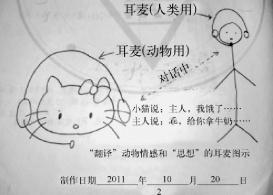 耳麦(人类用)
耳麦(动物用)
对话中
小猫说：主人，我饿了……
主人说：乖，给你拿牛奶……
“翻译”动物情感和“思想”的耳麦图示
制作日期 2011 年 10 月 20 日
2